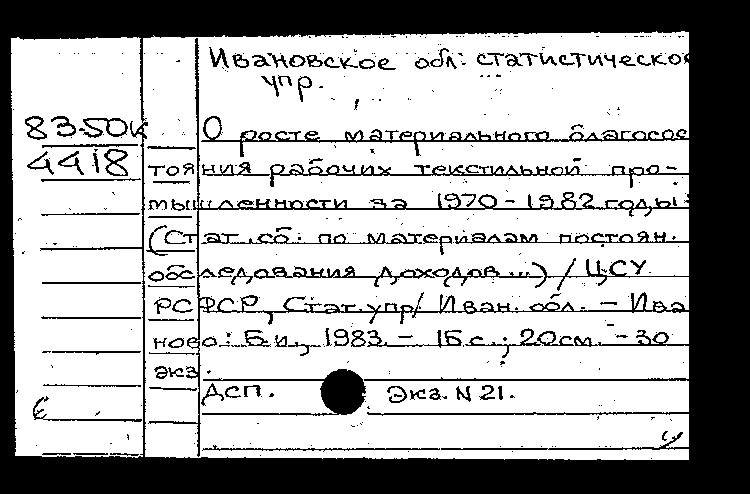 Ивановское обл. статистическо
упр.
83-50к О росте материального благосос
4418 тояния рабочих текстильной про-
мышленности за 1970-1982 годы:
(Стат. сб. по материалам постоян.
обследования доходов...) / ЦСУ
РСФСР, Стат. упр. Иван. обл. - Ива
ново: Б.и., 1983. - 15 с.; 20 см. - 30
экз.
ДСП. Экз. N 21.